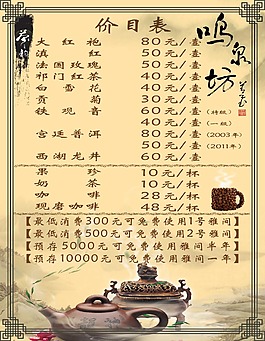 价目表
鸣泉坊
大红袍 80元/壶
滇红 50元/壶
法国玫瑰 50元/壶
祁门红茶 40元/壶
白雪花 40元/壶
贡菊 30元/壶
铁观音 60元/壶（特级）
40元/壶（一级）
宫廷普洱 80元/壶（2003年）
50元/壶（2011年）
西湖龙井 60元/壶
果珍 10元/杯
奶茶 10元/杯
咖啡 28元/杯
现磨咖啡 48元/杯
【最低消费300元可免费使用1号雅间】
【最低消费500元可免费使用2号雅间】
【预存5000元可免费使用雅间半年】
【预存10000元可免费使用雅间一年】